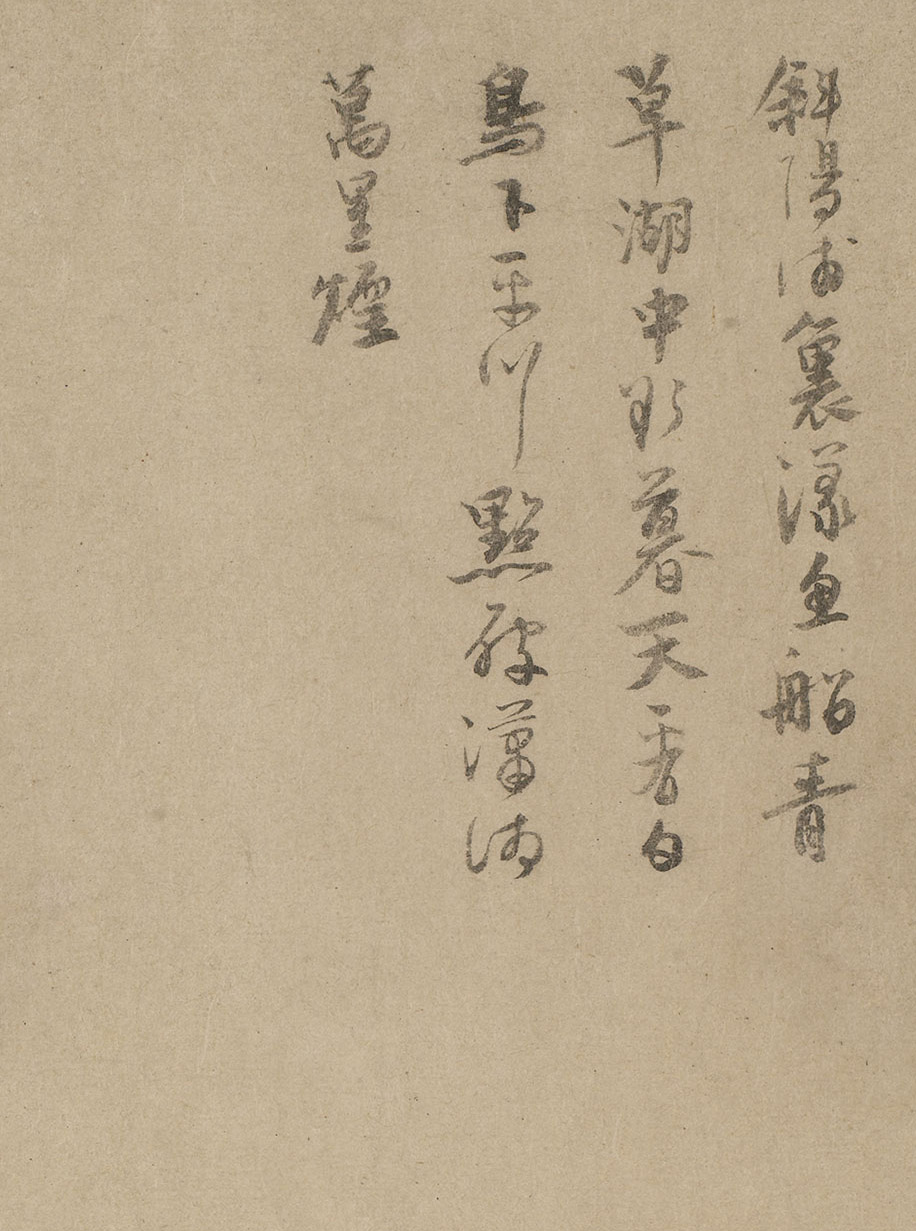 斜陽浦裏漾魚船青
草湖中欲暮天看白
鳥下平川點破瀟湘
萬里煙